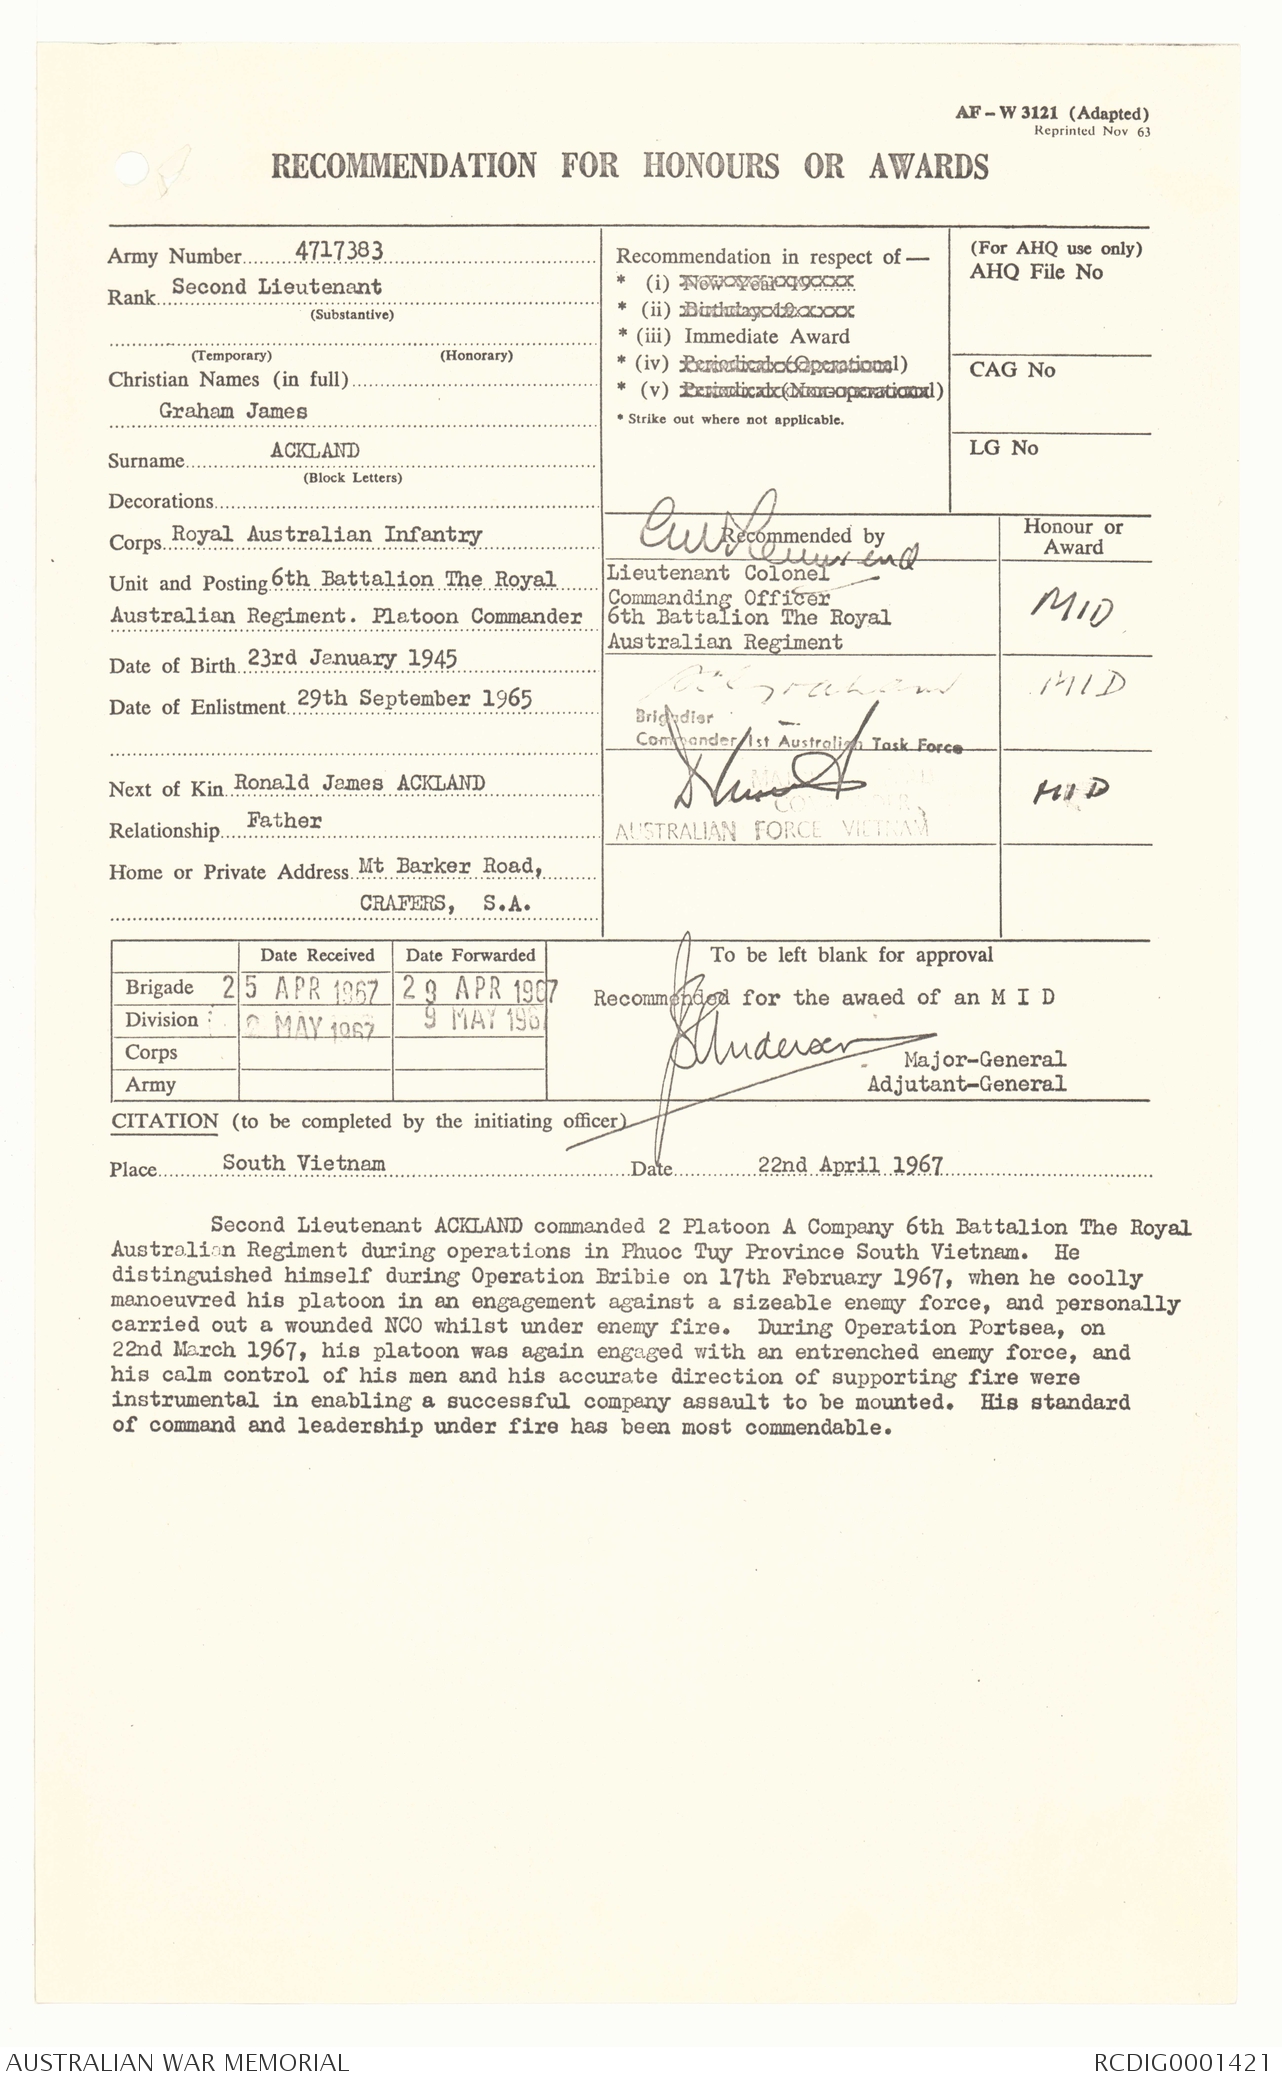 AF – W 3121 (Adapted)
Reprinted Nov 63
RECOMMENDATION FOR HONOURS OR AWARDS
Army Number 4717383
Rank Second Lieutenant
(Substantive)
(Temporary) (Honorary)
Christian Names (in full)
Graham James
Surname ACKLAND
(Block Letters)
Decorations
Corps Royal Australian Infantry
Unit and Posting 6th Battalion The Royal
Australian Regiment. Platoon Commander
Date of Birth 23rd January 1945
Date of Enlistment 29th September 1965
Next of Kin Ronald James ACKLAND
Relationship Father
Home or Private Address Mt Barker Road,
CRAFERS, S.A.
Recommendation in respect of —
* (i) New Year 19
* (ii) Birthday 19
* (iii) Immediate Award
* (iv) Periodical (Operational)
* (v) Periodical (Non-operational)
* Strike out where not applicable.
(For AHQ use only)
AHQ File No
CAG No
LG No
Recommended by
Lieutenant Colonel
Commanding Officer
6th Battalion The Royal
Australian Regiment
Honour or
Award
MID
Brigadier
Commander 1st Australian Task Force
MID
COMMANDER
AUSTRALIAN FORCE VIETNAM
MID
Date Received Date Forwarded
Brigade 25 APR 1967 29 APR 1967
Division 2 MAY 1967 9 MAY 196
Corps
Army
To be left blank for approval
Recommended for the awaed of an M I D
Major-General
Adjutant-General
CITATION (to be completed by the initiating officer)
Place South Vietnam Date 22nd April 1967
Second Lieutenant ACKLAND commanded 2 Platoon A Company 6th Battalion The Royal
Australian Regiment during operations in Phuoc Tuy Province South Vietnam. He
distinguished himself during Operation Bribie on 17th February 1967, when he coolly
manoeuvred his platoon in an engagement against a sizeable enemy force, and personally
carried out a wounded NCO whilst under enemy fire. During Operation Portsea, on
22nd March 1967, his platoon was again engaged with an entrenched enemy force, and
his calm control of his men and his accurate direction of supporting fire were
instrumental in enabling a successful company assault to be mounted. His standard
of command and leadership under fire has been most commendable.
AUSTRALIAN WAR MEMORIAL RCDIG0001421